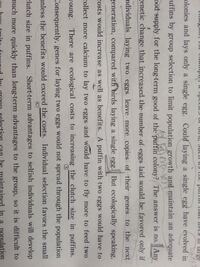 colonies and lays only a single egg. Could laying a single egg have evolved in
puffins by group selection to limit population growth and maintain an adequate
food supply for the long-term good of the puffin colony? The answer is no. Any
genetic change that increased the number of eggs laid would be favored only if
individuals laying two eggs leave more copies of their genes to the next
generation, compared with birds laying a single egg. But ecologically speaking,
costs would increase as well as benefits. A puffin with two eggs would have to
collect more calcium to lay two eggs and would have to fly more to feed two
young. There are ecological costs to increasing the clutch size in puffins.
Consequently genes for laying two eggs would not spread through the population
unless benefits would exceed the costs. Individual selection favors the small
clutch size in puffins. Short-term advantages to selfish individuals will develop
much more quickly than long-term advantages to the group, so it is difficult to
group selection can be maintained in a population